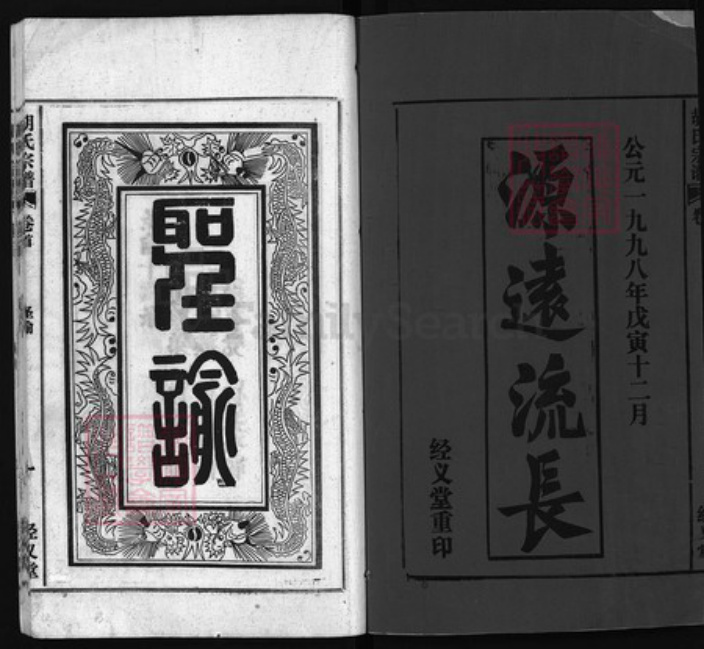 公元一九九八年戊寅十二月
源遠流長
经义堂重印
聖諭
胡氏宗谱
卷首
圣谕
一
经义堂
FamilySearch